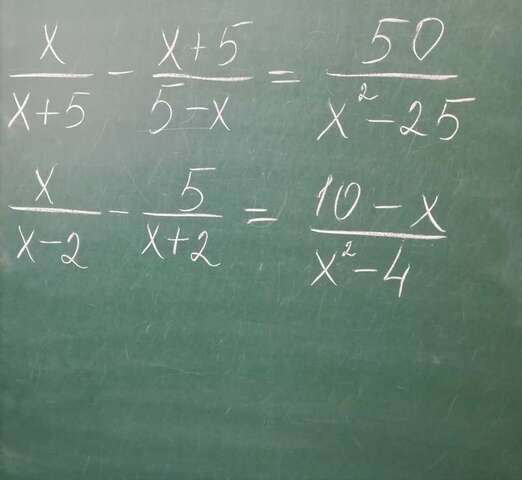 x/(x+5) - (x+5)/(5-x) = 50/(x²-25)
x/(x-2) - 5/(x+2) = (10-x)/(x²-4)